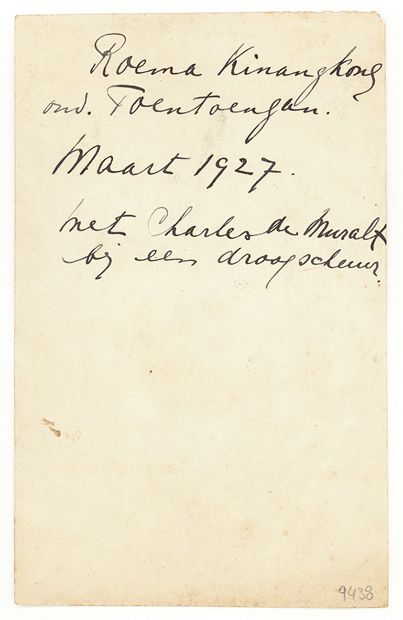 Roema Kinangkong
ond. Toentoengan.
Maart 1927.
met Charles de Muralt
bij een droogschuur.
9438